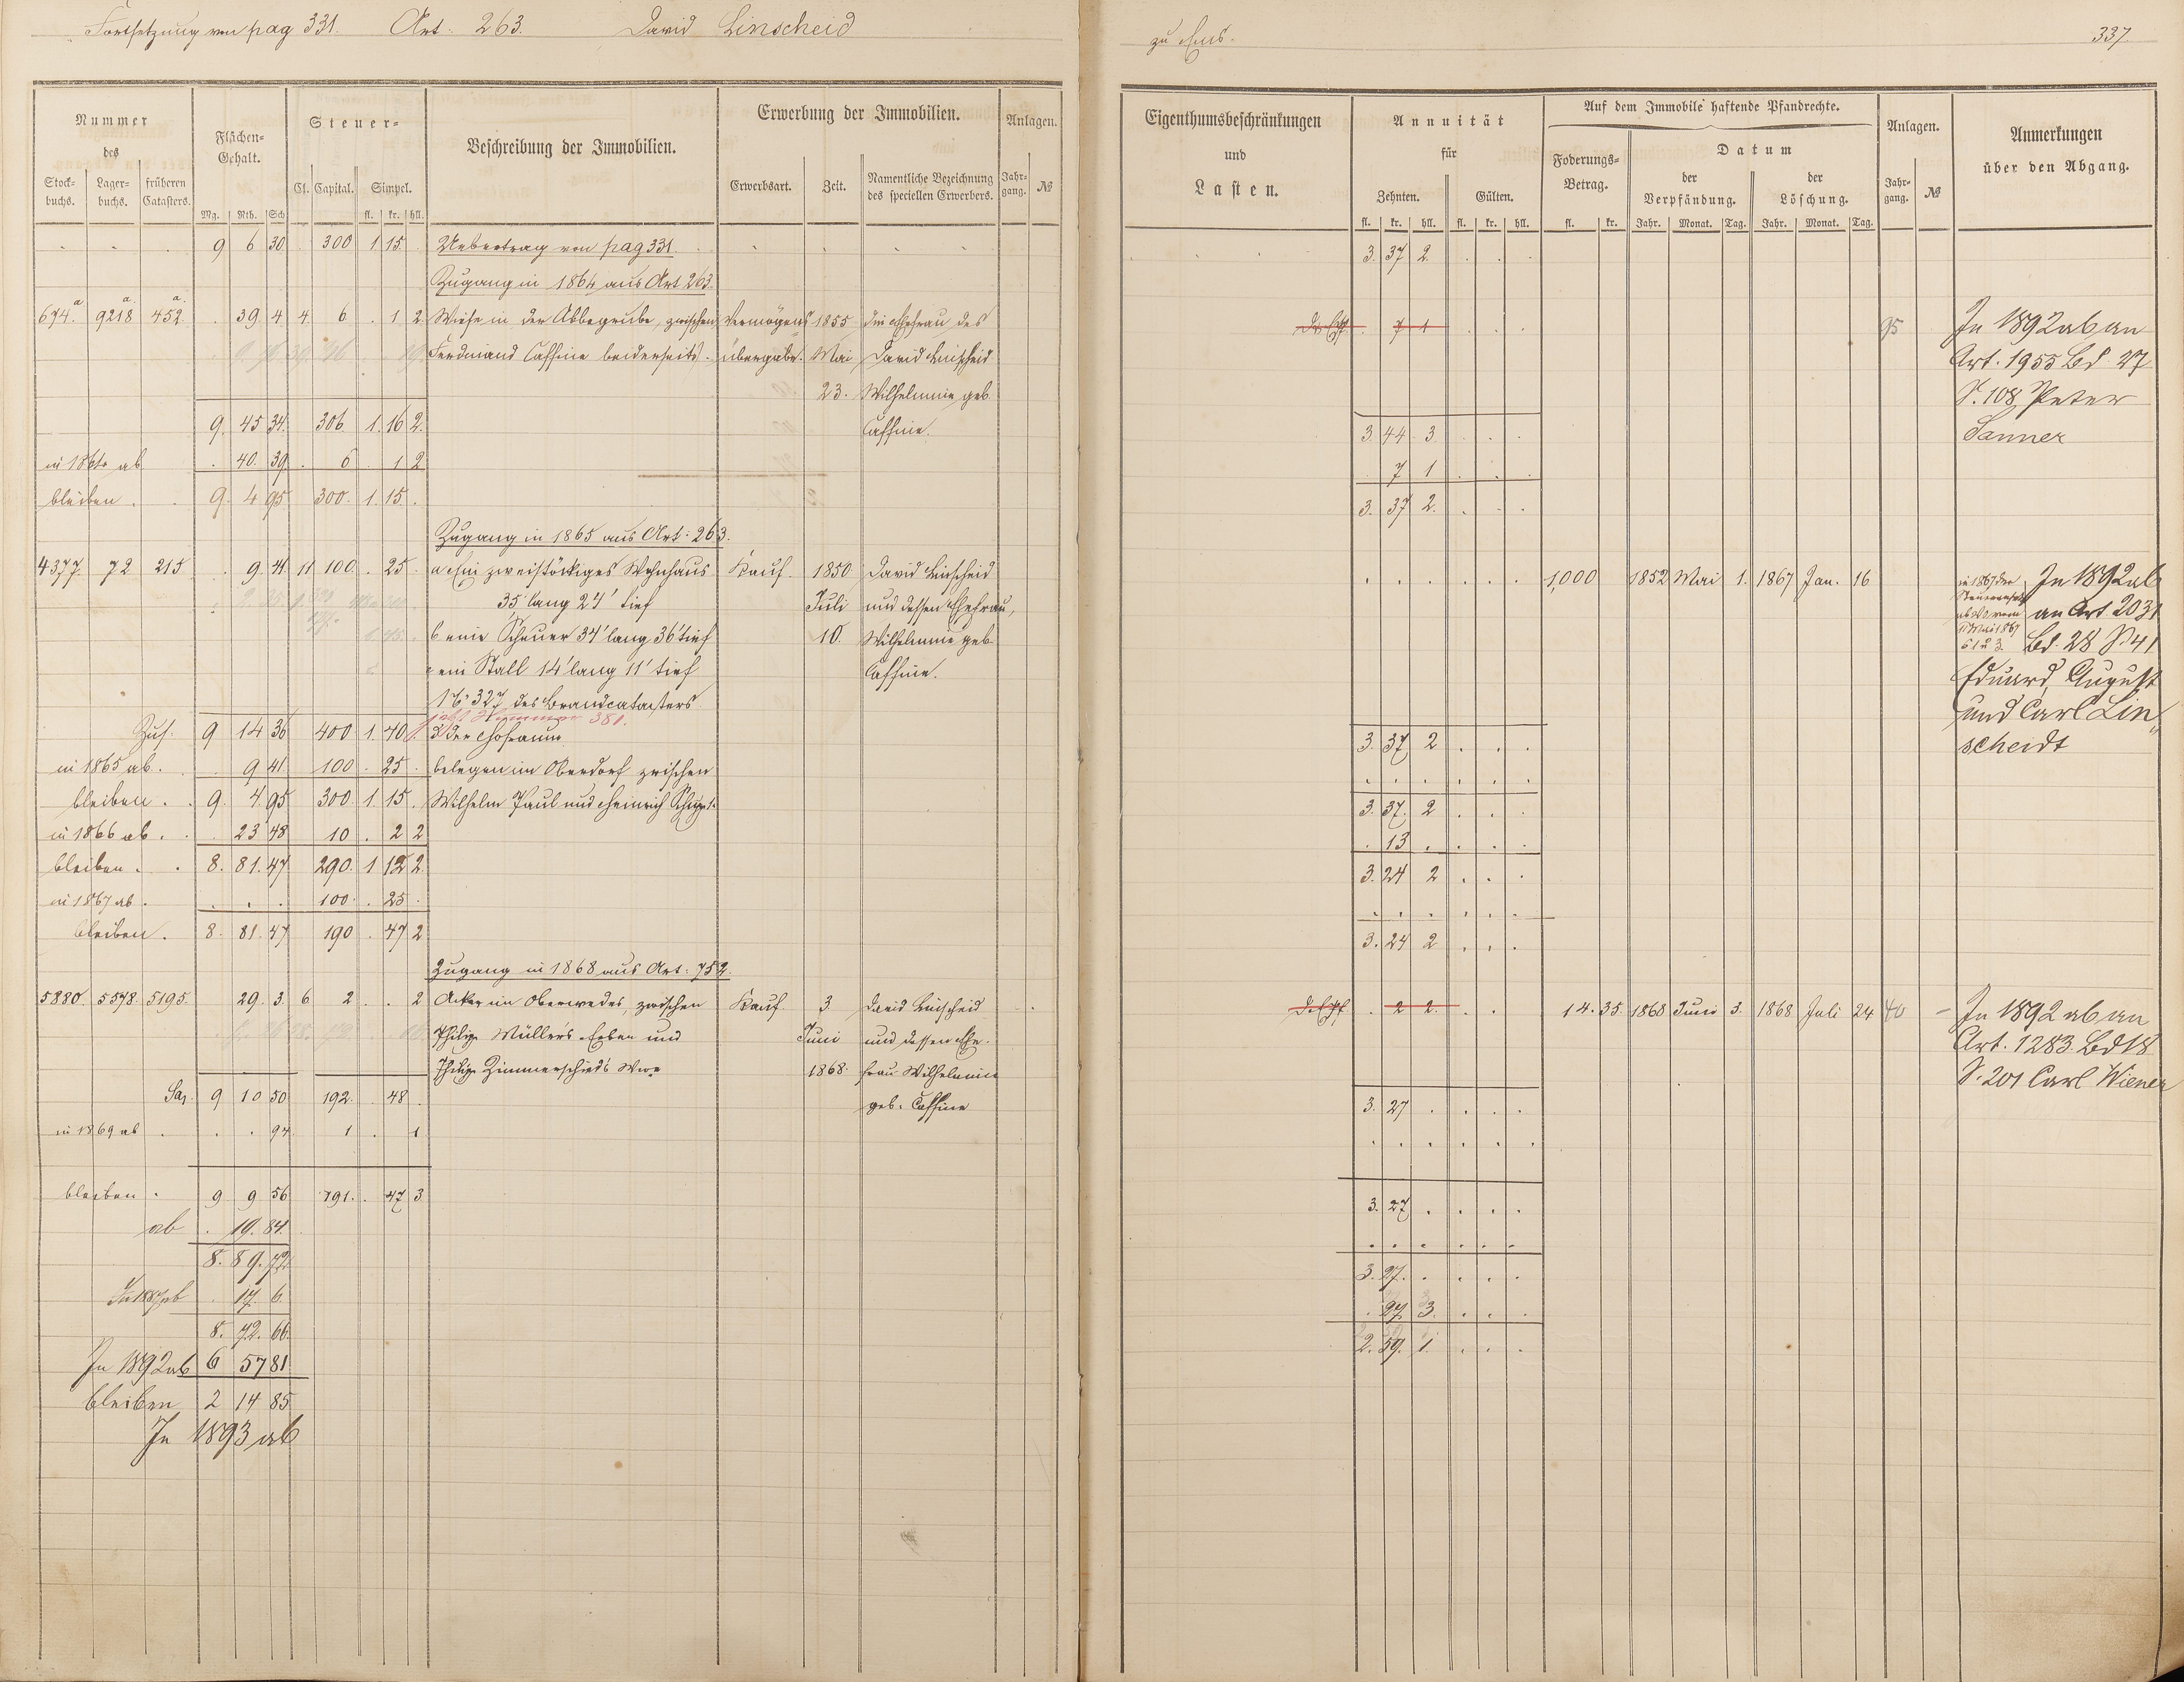 Fortsetzung von pag 331. Art. 263. David Linscheid
zu Ems. 337.
Nummer des
Stock-buchs. Lager-buchs. früheren Catasters.
Flächen-Gehalt.
Mg. Rth. Sch
Steuer-
Cl. Capital. Simpel.
fl. kr. hll.
Beschreibung der Immobilien.
Erwerbung der Immobilien.
Erwerbsart. Zeit. Namentliche Bezeichnung des speciellen Erwerbers.
Anlagen.
Jahr-gang. №
Eigenthumsbeschränkungen und Lasten.
Annuität für
Zehnten. Gülten.
fl. kr. hll. fl. kr. hll.
Auf dem Immobile haftende Pfandrechte.
Foderungs-Betrag.
fl. kr.
Datum
der Verpfändung. der Löschung.
Jahr. Monat. Tag. Jahr. Monat. Tag.
Anlagen.
Jahr-gang. №
Anmerkungen über den Abgang.
9 6 30 300 1 15 Uebertrag von pag 331. 3. 37 2
Zugang in 1864 aus Art 263.
674.a 9218a 452a 39 4 4. 6 1 2 Wiese in der Abbegrube, zwischen Vermögens 1855 die Ehefrau des 7 1 95 In 1892 ab an
Ferdinand Caffine beiderseits. übergabe. Mai David Linscheid Art. 1955 Bd 27
23. Wilhelmine geb. S. 108 Peter
9. 45 34. 306. 1. 16 2. Caffine. 3. 44 3 Sanner
in 1864 ab 40. 39 6 1 2 7 1
bleiben. 9. 4 95 300. 1. 15. 3. 37 2.
Zugang in 1865 aus Art: 263.
4377. 72 215 9. 41 11 100 25 a Ein zweistöckiges Wohnhaus Kauf. 1850 David Linscheid 1,000 1852 Mai 1. 1867 Jan. 16 In 1892 ab
35' lang 24' tief Juli und dessen Ehefrau, an Art 2031
b eine Scheuer 34' lang 36' tief 10. Wilhelmine geb. Bd. 28 S. 41
c ein Stall 14' lang 11' tief Caffine. Eduard, August
№ 327 des Brandcatasters und Carl Lin
jetzt Nummer 381.
Zus. 9 14 36 400 1. 40 d der Hofraum 3. 37 2 scheidt
in 1865 ab. 9 41. 100 25 belegen im Oberdorf zwischen
bleiben. 9. 4. 95 300. 1 15. Wilhelm Paul und Heinrich 3. 37. 2
in 1866 ab. 23 48 10 2 2 13
bleiben. 8. 81. 47 290. 1 12 2. 3. 24 2
in 1867 ab. 100. 25
bleiben. 8. 81. 47 190 47 2 3. 24 2
Zugang in 1868 aus Art: 752.
5880. 5578. 5195. 29. 3. 6 2 2 Acker im Oberwedes, zwischen Kauf. 3 David Linscheid 2 2. 14. 35. 1868 Juni 3. 1868 Juli 24 40 In 1892 ab an
Philipp Müllers Erben und Juni und dessen Ehe- Art. 1283. Bd 18
Philipp Zimmerschied's Wwe 1868. frau Wilhelmine S. 201 Carl Wiener
Sa. 9 10 50 192. 48. geb. Caffine 3. 27
in 1869 ab 94. 1 1
bleiben. 9 9 56 191. 47 3 3. 27
ab 19. 84.
8. 89. 72. 3. 27.
In 1887 ab 17. 6. 27. 3.
8. 72. 66. 2. 59. 1.
In 1892 ab 6 57 81
bleiben 2 14 85
In 1893 ab